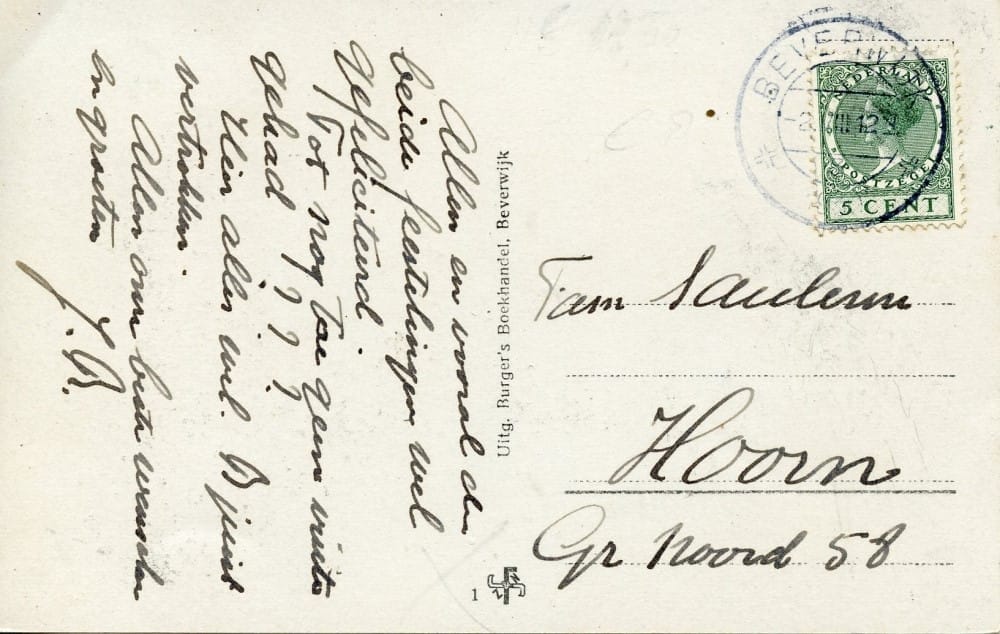 Allen en vooral de
beide feestelingen wel
gefeliciteerd.
Tot nog toe geen visite
gehad ? ? ?
Hier alles wel. B juist
vertrokken.
Allen onze beste wenschen
en groeten
J. B.
Uitg. Burger's Boekhandel, Beverwijk
1
BEVERWIJK
III 12
NEDERLAND
POSTZEGEL
5 CENT
Fam
Hoorn
Gr Noord 58